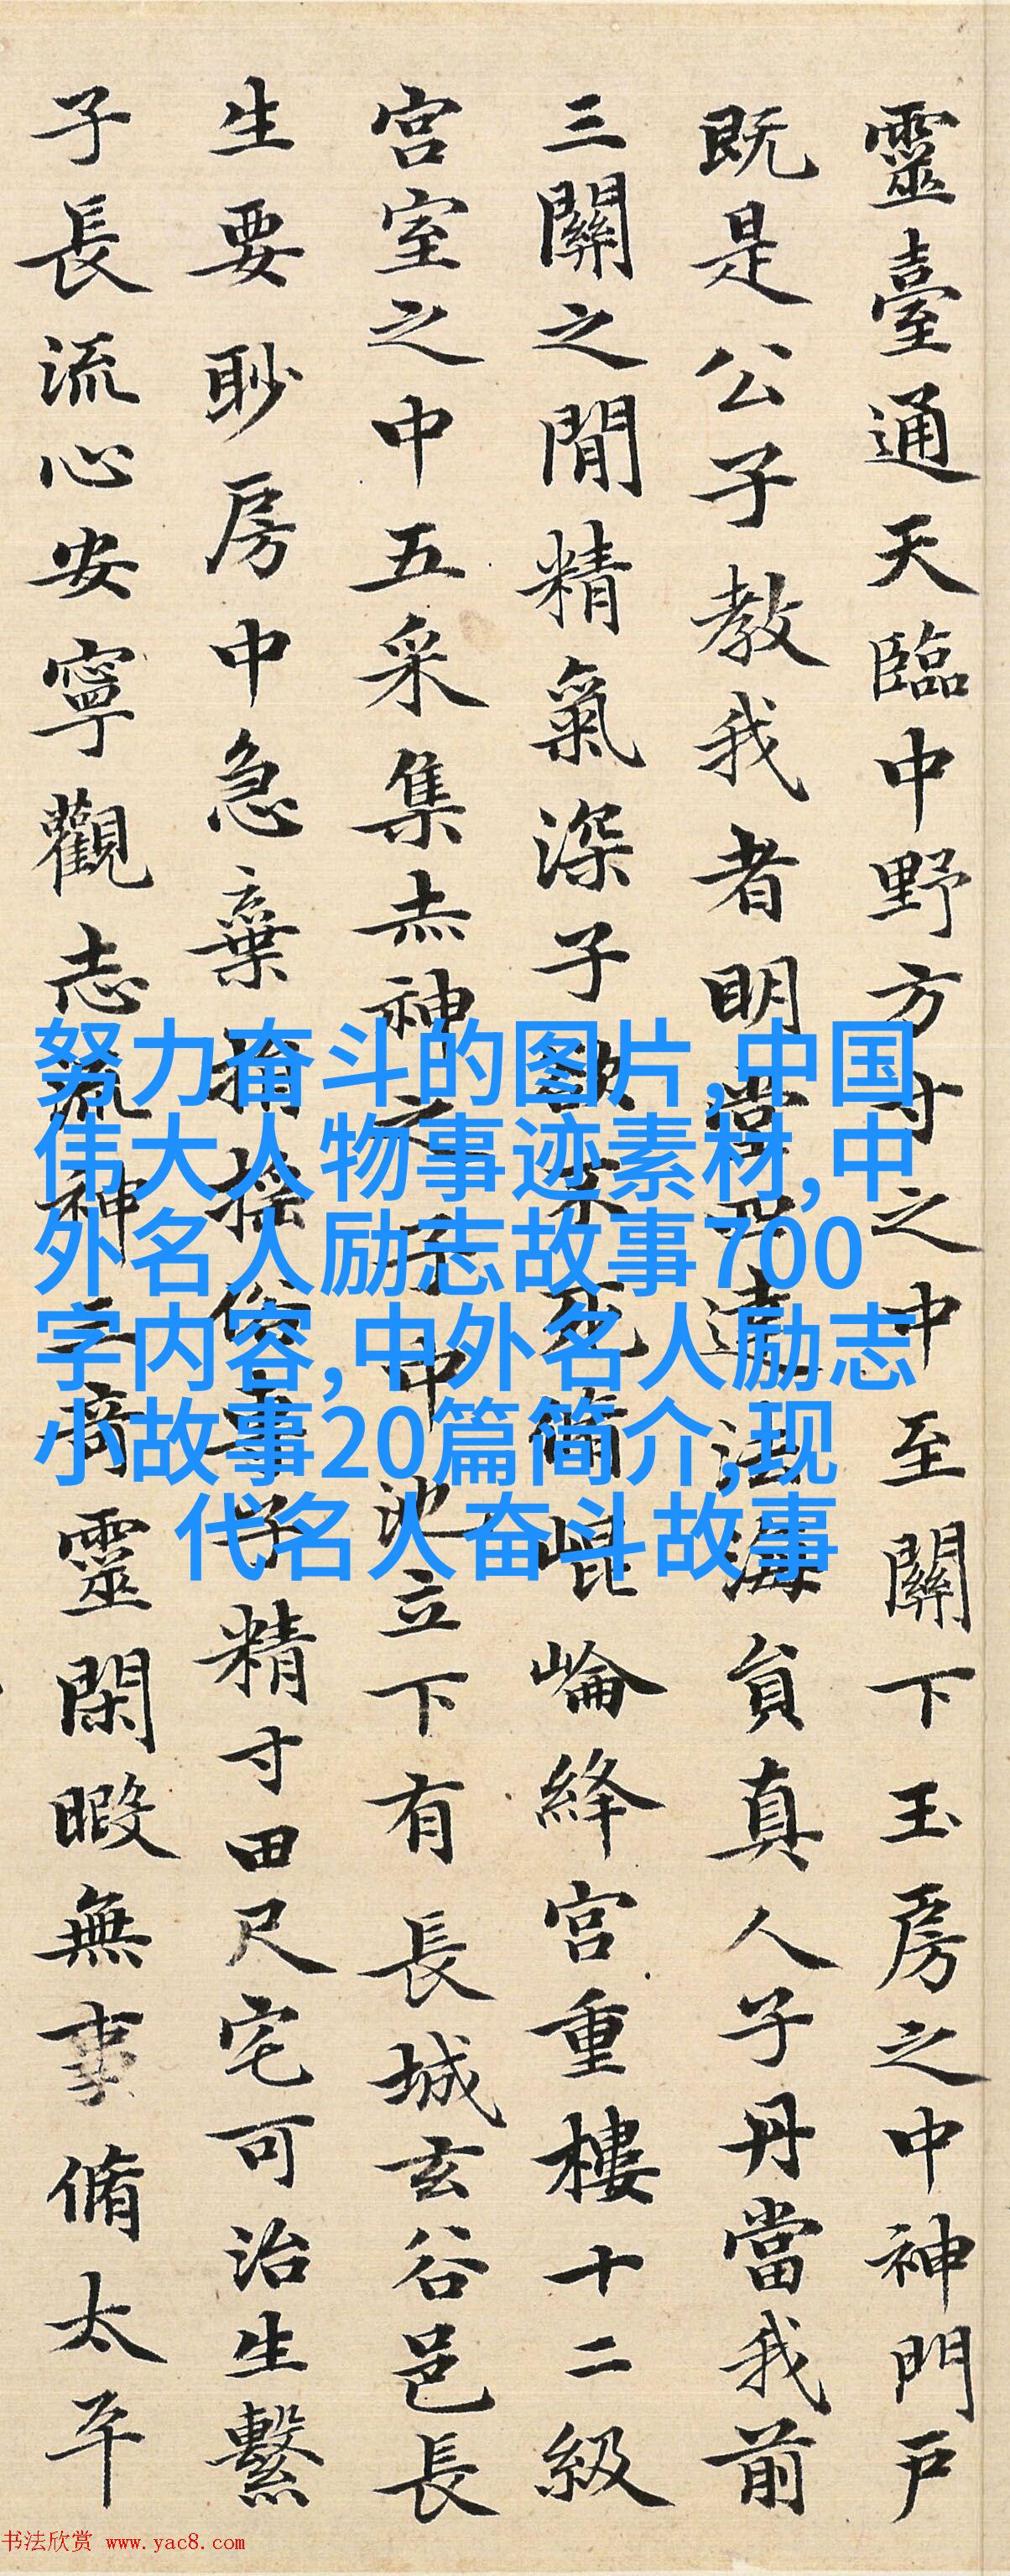 靈臺通天臨中野方寸之中至關下玉房之中神門戶
既是公子教我者明堂四達法海員真人子丹當我前
三關之閒精氣深子欲不死脩崐崘絳宮重樓十二級
宮室之中五采集赤神之子中池立下有長城玄谷邑長
生要眇房中急棄捐搖俗專子精寸田尺宅可治生繫
子長流心安寧觀志流神三奇靈閑暇無事脩太平
努力奋斗的图片,中国
伟大人物事迹素材,中
外名人励志故事700
字内容,中外名人励志
小故事20篇简介,现
代名人奋斗故事
书法欣赏 www.yac8.com